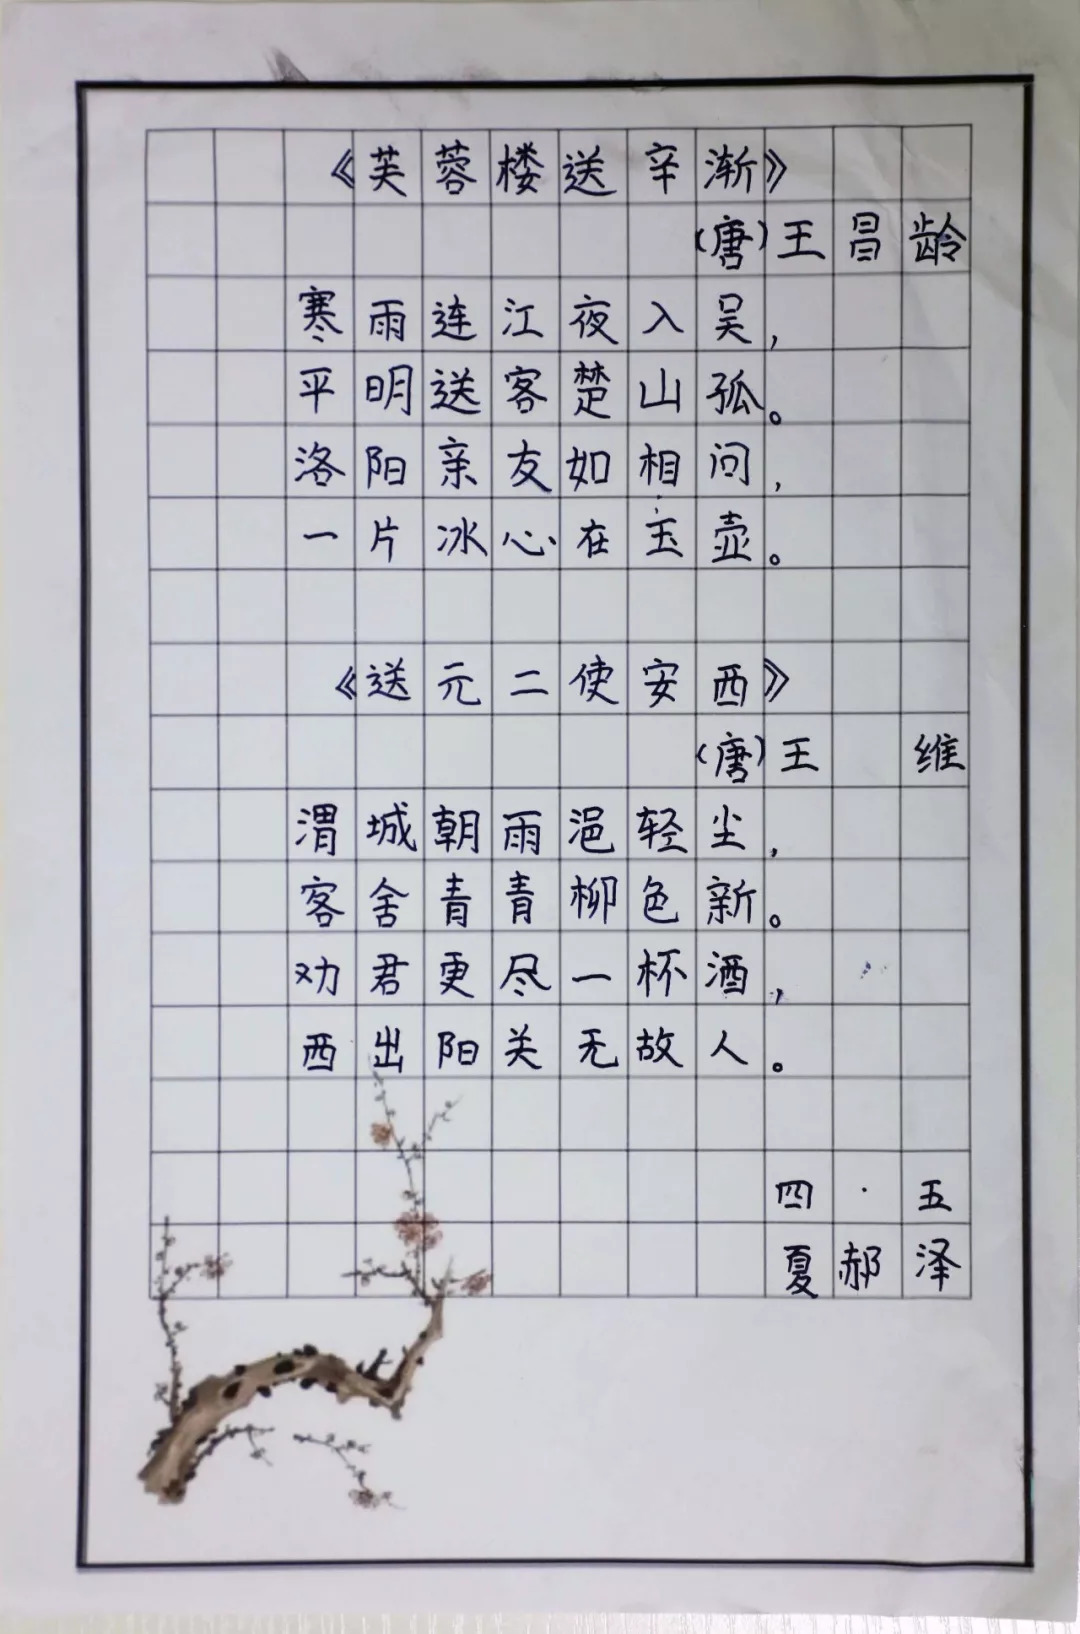 《芙蓉楼送辛渐》
(唐)王昌龄
寒雨连江夜入吴,
平明送客楚山孤。
洛阳亲友如相问,
一片冰心在玉壶。
《送元二使安西》
(唐)王 维
渭城朝雨浥轻尘,
客舍青青柳色新。
劝君更尽一杯酒,
西出阳关无故人。
四·五
夏郝泽